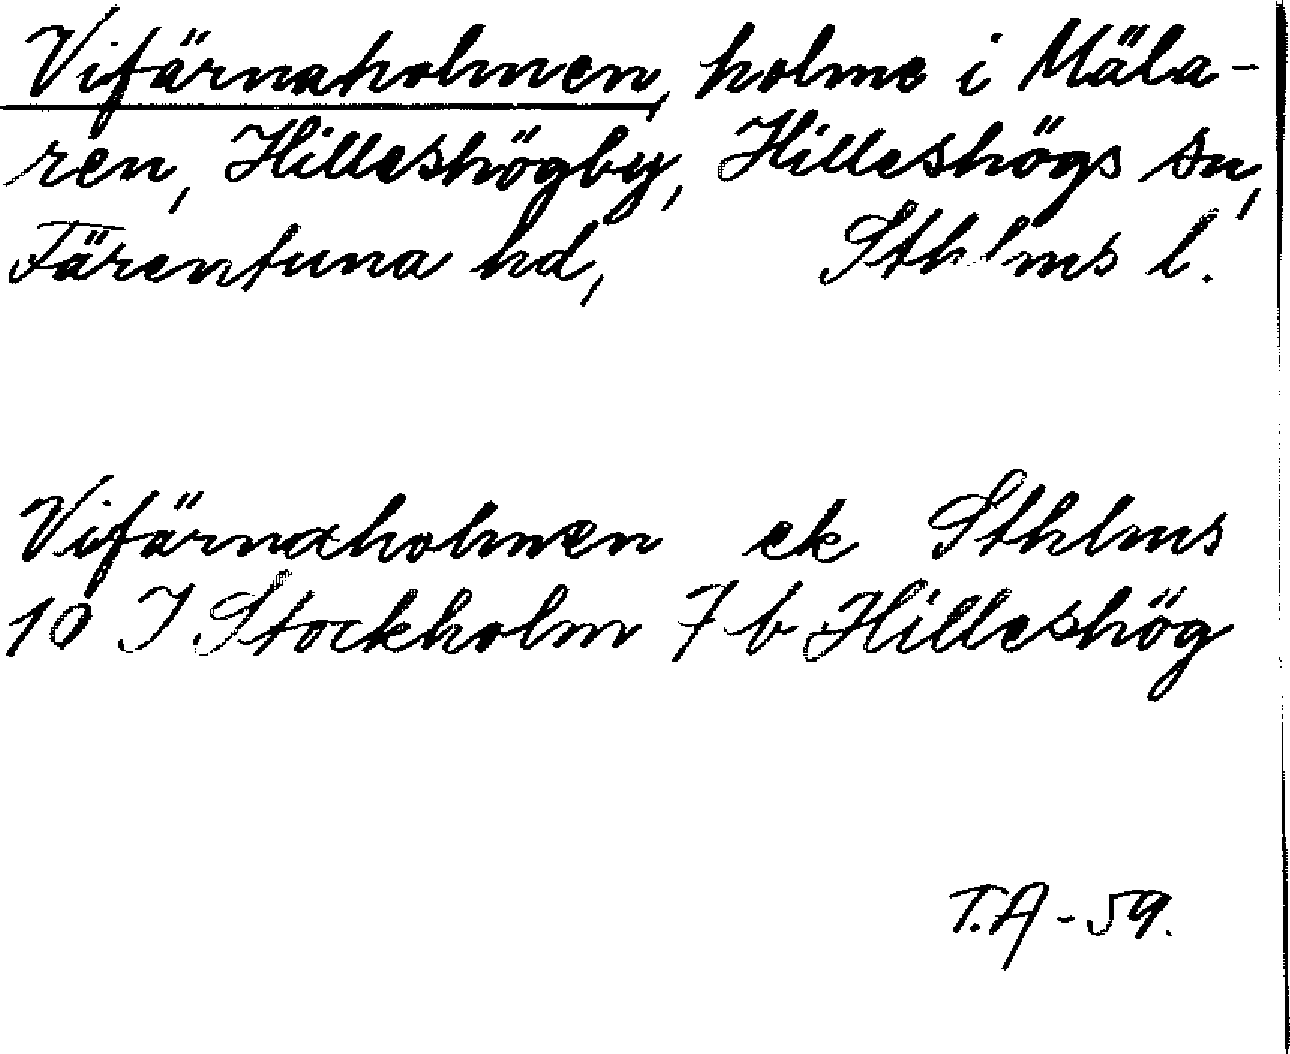 Vifärnaholmen, holme i Mäla-
ren, Hilleshögby, Hilleshögs sn,
Färentuna hd, Sthlms l.
Vifärnaholmen ek Sthlms
10 I Stockholm 7 b Hilleshög
T.A-59.